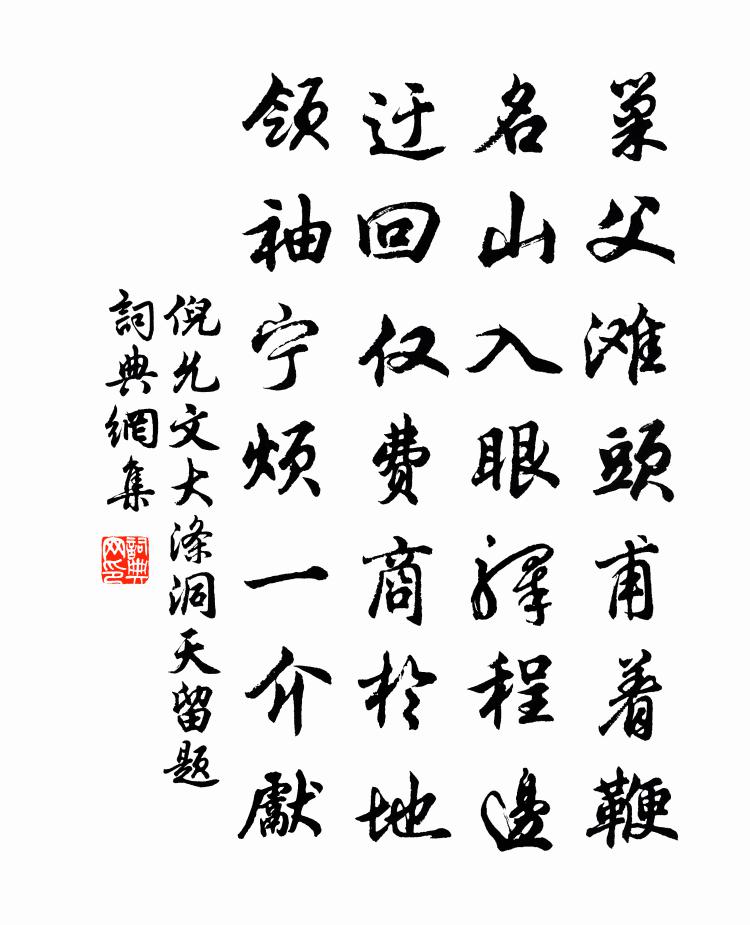 巢父滩頭甫着鞭
名山入眼驛程邊
迂回仅费商於地
领袖宁烦一介獻
倪允文大涤洞天留题
詞典網集
詞典
网印